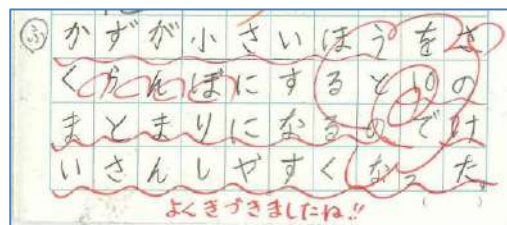 ふ かずが小さいほうをさ
くらんぼにすると10の
まとまりになるのでけ
いさんしやすくなった。
よくきづきましたね!!